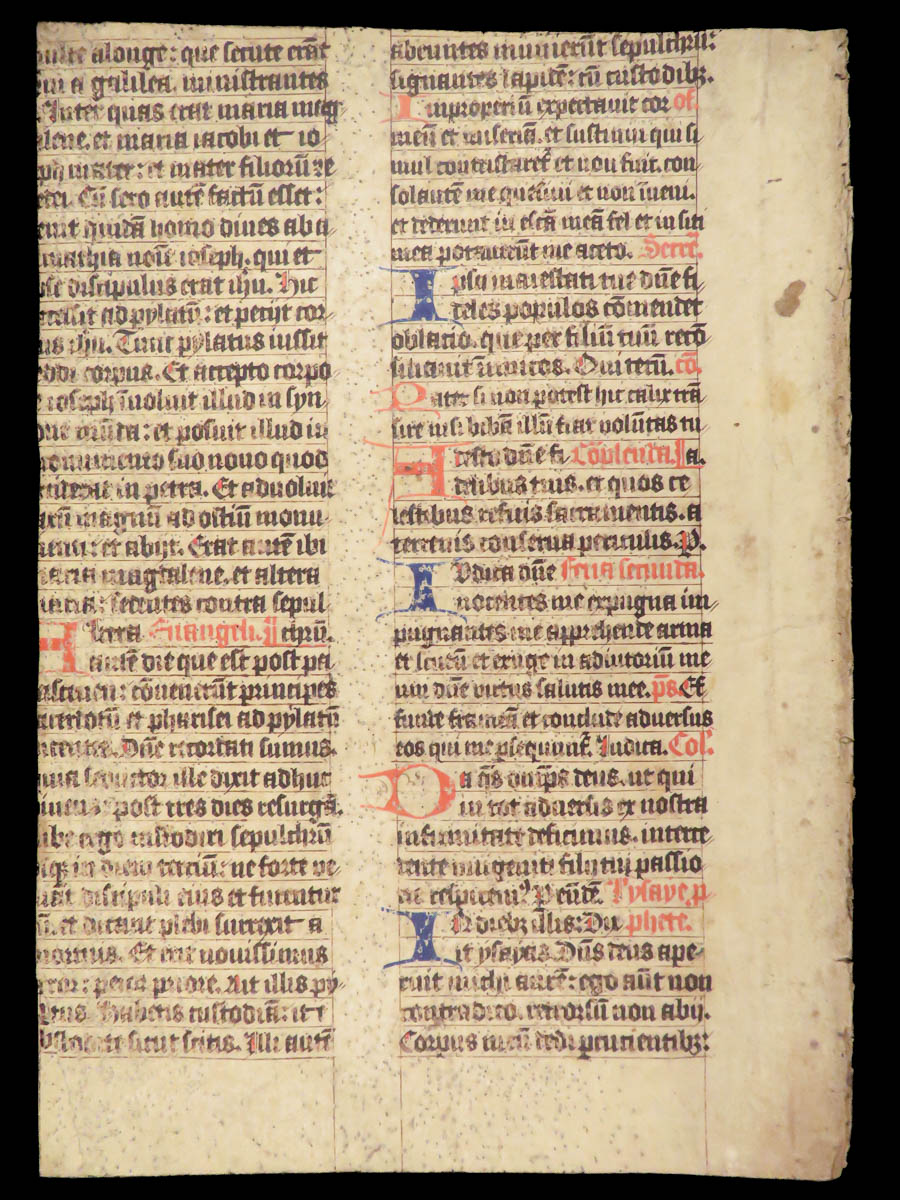 multe alonge: que secute erāt
a galilea. ministrantes
Inter quas erat maria mag
alene. et maria iacobi et io
seph mater: et mater filiorū ze
bedei. Cū sero autē factū esset:
uenit quidā homo diues ab a
rimathia noīe ioseph. qui et
ipse discipulus erat ihū. Hic
accessit ad pylatū: et petijt cor
pus ihū. Tunc pylatus iussit
reddi corpus. Et accepto corpo
re ioseph īuoluit illud in syn
done mūda: et posuit illud in
monumento suo nouo quod
exciderat in petra. Et aduoluit
saxū magnū ad ostiū monu
menti: et abijt. Erat autē ibi
maria magdalene. et altera
maria: sedentes contra sepul
Altera Euangeli. chrū.
autē die que est post pa
rasceuen: cōuenerūt principes
sacerdotū et pharisei ad pylatū
dicentes. Dn̄e recordati sumus.
quia seductor ille dixit adhuc
uiuens: post tres dies resurgā.
iube ergo custodiri sepulchrū
usq; in diem terciū: ne forte ve
niāt discipuli eius et furentur
eū. et dicant plebi surrexit a
mortuis. Et erit nouissimus
error: peior priore. Ait illis py
latus. Habetis custodiā: ite
custodite sicut scitis. Illi autē
abeuntes munierūt sepulchrū:
signantes lapidē: cū custodibꝫ.
Improperiū expectauit cor of.
meū et miseriā. et sustinui qui si
mul contristaret᷑ et non fuit. con
solantē me quesiui et non īueni.
et dederunt in escā meā fel et in siti
mea potauerūt me aceto. Secre.
Ipsa maiestati tue dn̄e fi
deles populos cōmendet
oblatio. que per filiū tuū recō
siliauit īimicos. Qui tecū. cō.
Pater si non potest hic calix trā
sire nisi bibā illū fiat volūtas tu
Adesto dn̄e fi Cōplenda. a.
delibus tuis. et quos ce
lestibus reficis sacramentis. a
terrenis conserua periculis. P.
Iudica dn̄e Feria secunda.
nocentes me expugna im
pugnantes me apprehende arma
et scutū et exurge in adiutoriū me
um dn̄e virtus salutis mee. ps. Ef
funde frameā et conclude aduersus
eos qui me ꝑsequūt᷑. Iudica. Col.
Da q̄s om̄ps deus. ut qui
in tot aduersis ex nostra
infirmitate deficimus. interce
dente unigeniti filij tui passio
ne respiremꝰ. P eūdē. Ysaye p
In diebꝫ illis. Dix phete.
it ysayas. Dn̄s deus ape
ruit michi aurē: ego aūt non
contradico. retrorsū non abij.
Corpus meū dedi ꝑcucientibꝫ: